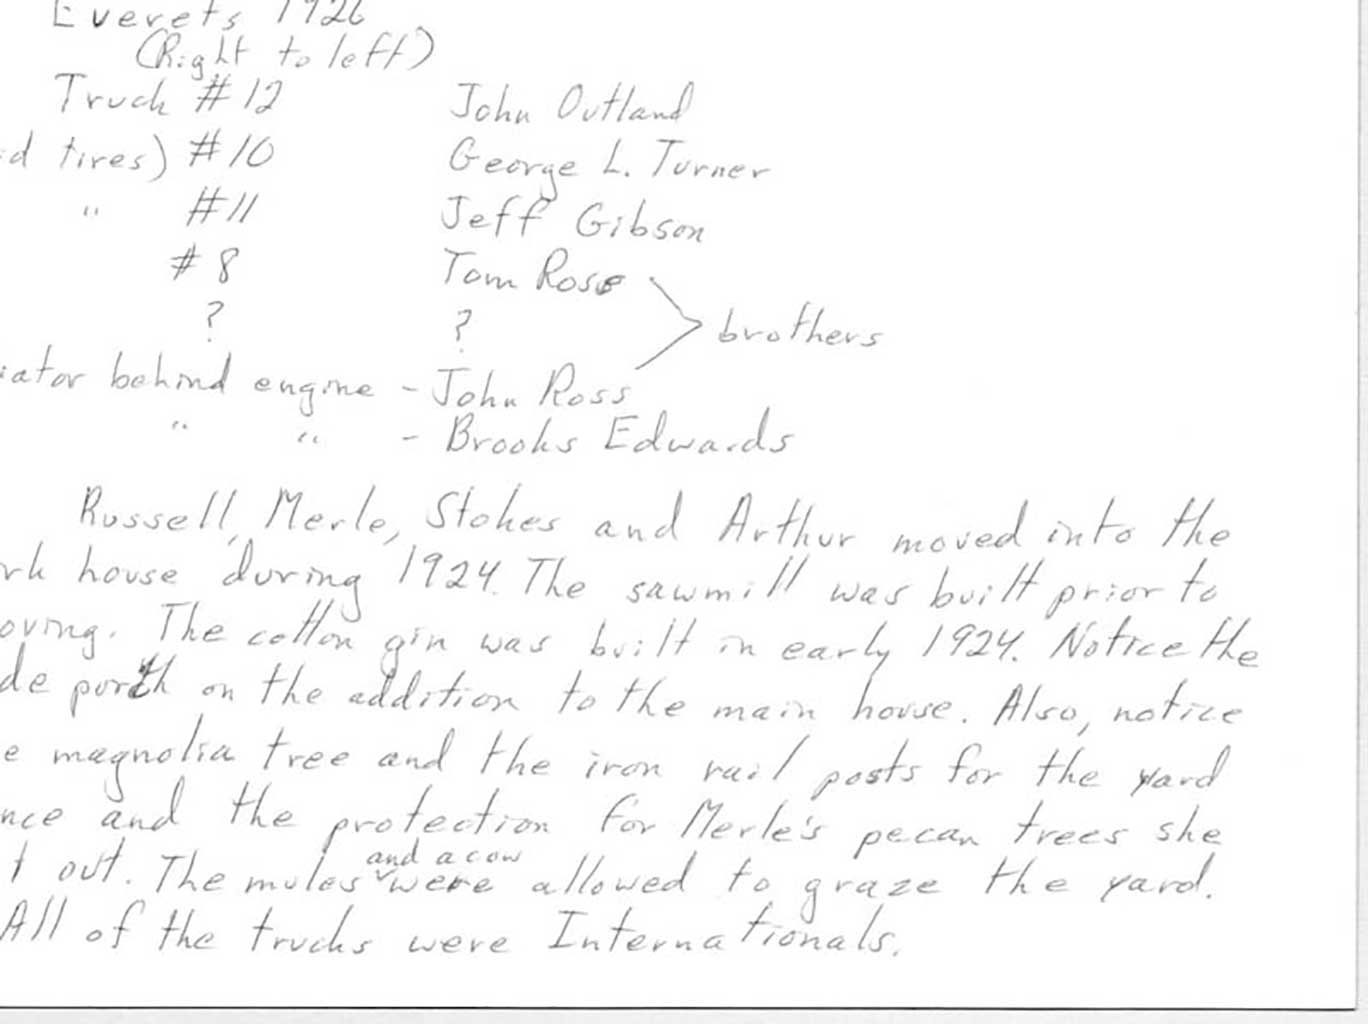 Everets 1926
(Right to left)
Truck #12 John Outland
d tires) #10 George L. Turner
" #11 Jeff Gibson
#8 Tom Ross
? ? brothers
iator behind engine - John Ross
" " - Brooks Edwards
Russell, Merle, Stokes and Arthur moved into the
rk house during 1924. The sawmill was built prior to
oving. The cotton gin was built in early 1924. Notice the
de porch on the addition to the main house. Also, notice
e magnolia tree and the iron rail posts for the yard
nce and the protection for Merle's pecan trees she
t out. The mules and a cow were allowed to graze the yard.
All of the trucks were Internationals.